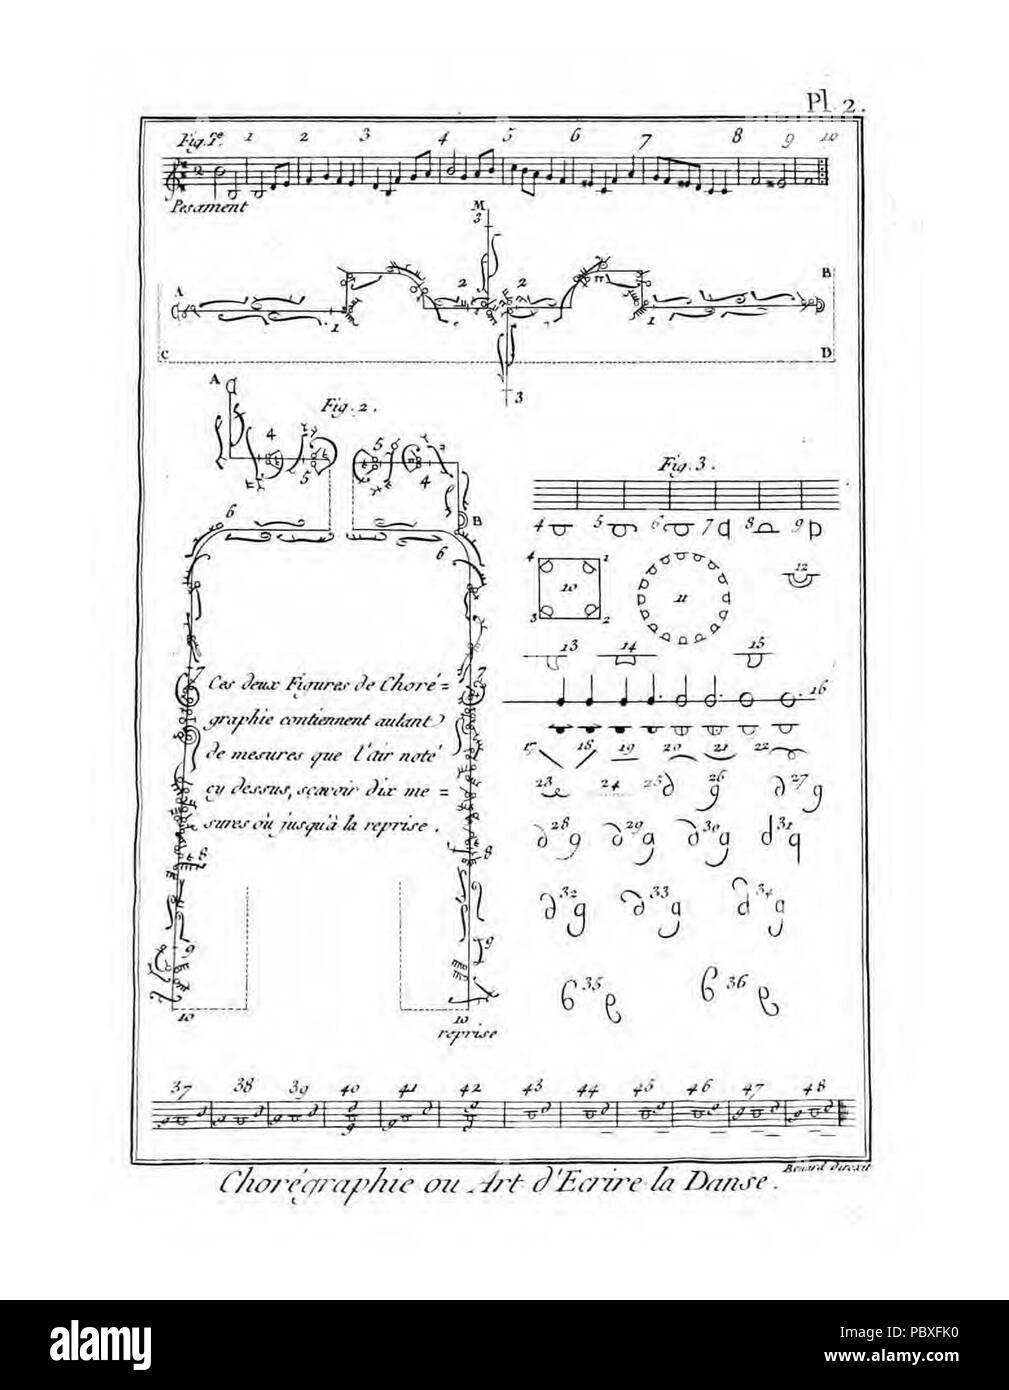 Pl. 2.
Fig. 1.re 1 2 3 4 5 6 7 8 9 10
2
Pesament
M
3
A 2 2 B
1 1
C D
3
A
Fig. 2.
4 5 5 4
B
6 6
7 7
Ces deux Figures de Choré=
graphie contiennent autant
de mesures que l'air noté
cy dessus, sçavoir dix me=
sures ou jusqu'à la reprise.
8 8
9 9
10 10
reprise
Fig. 3.
4 5 6 7 8 9
4 1
10 11 12
3 2
13 14 15
16
17 18 19 20 21 22
23 24 25 26 27
28 29 30 31
32 33 34
35 36
37 38 39 40 41 42 43 44 45 46 47 48
Benard direxit
Chorégraphie ou Art d'Ecrire la Danse.
alamy
Image ID: PBXFK0
www.alamy.com